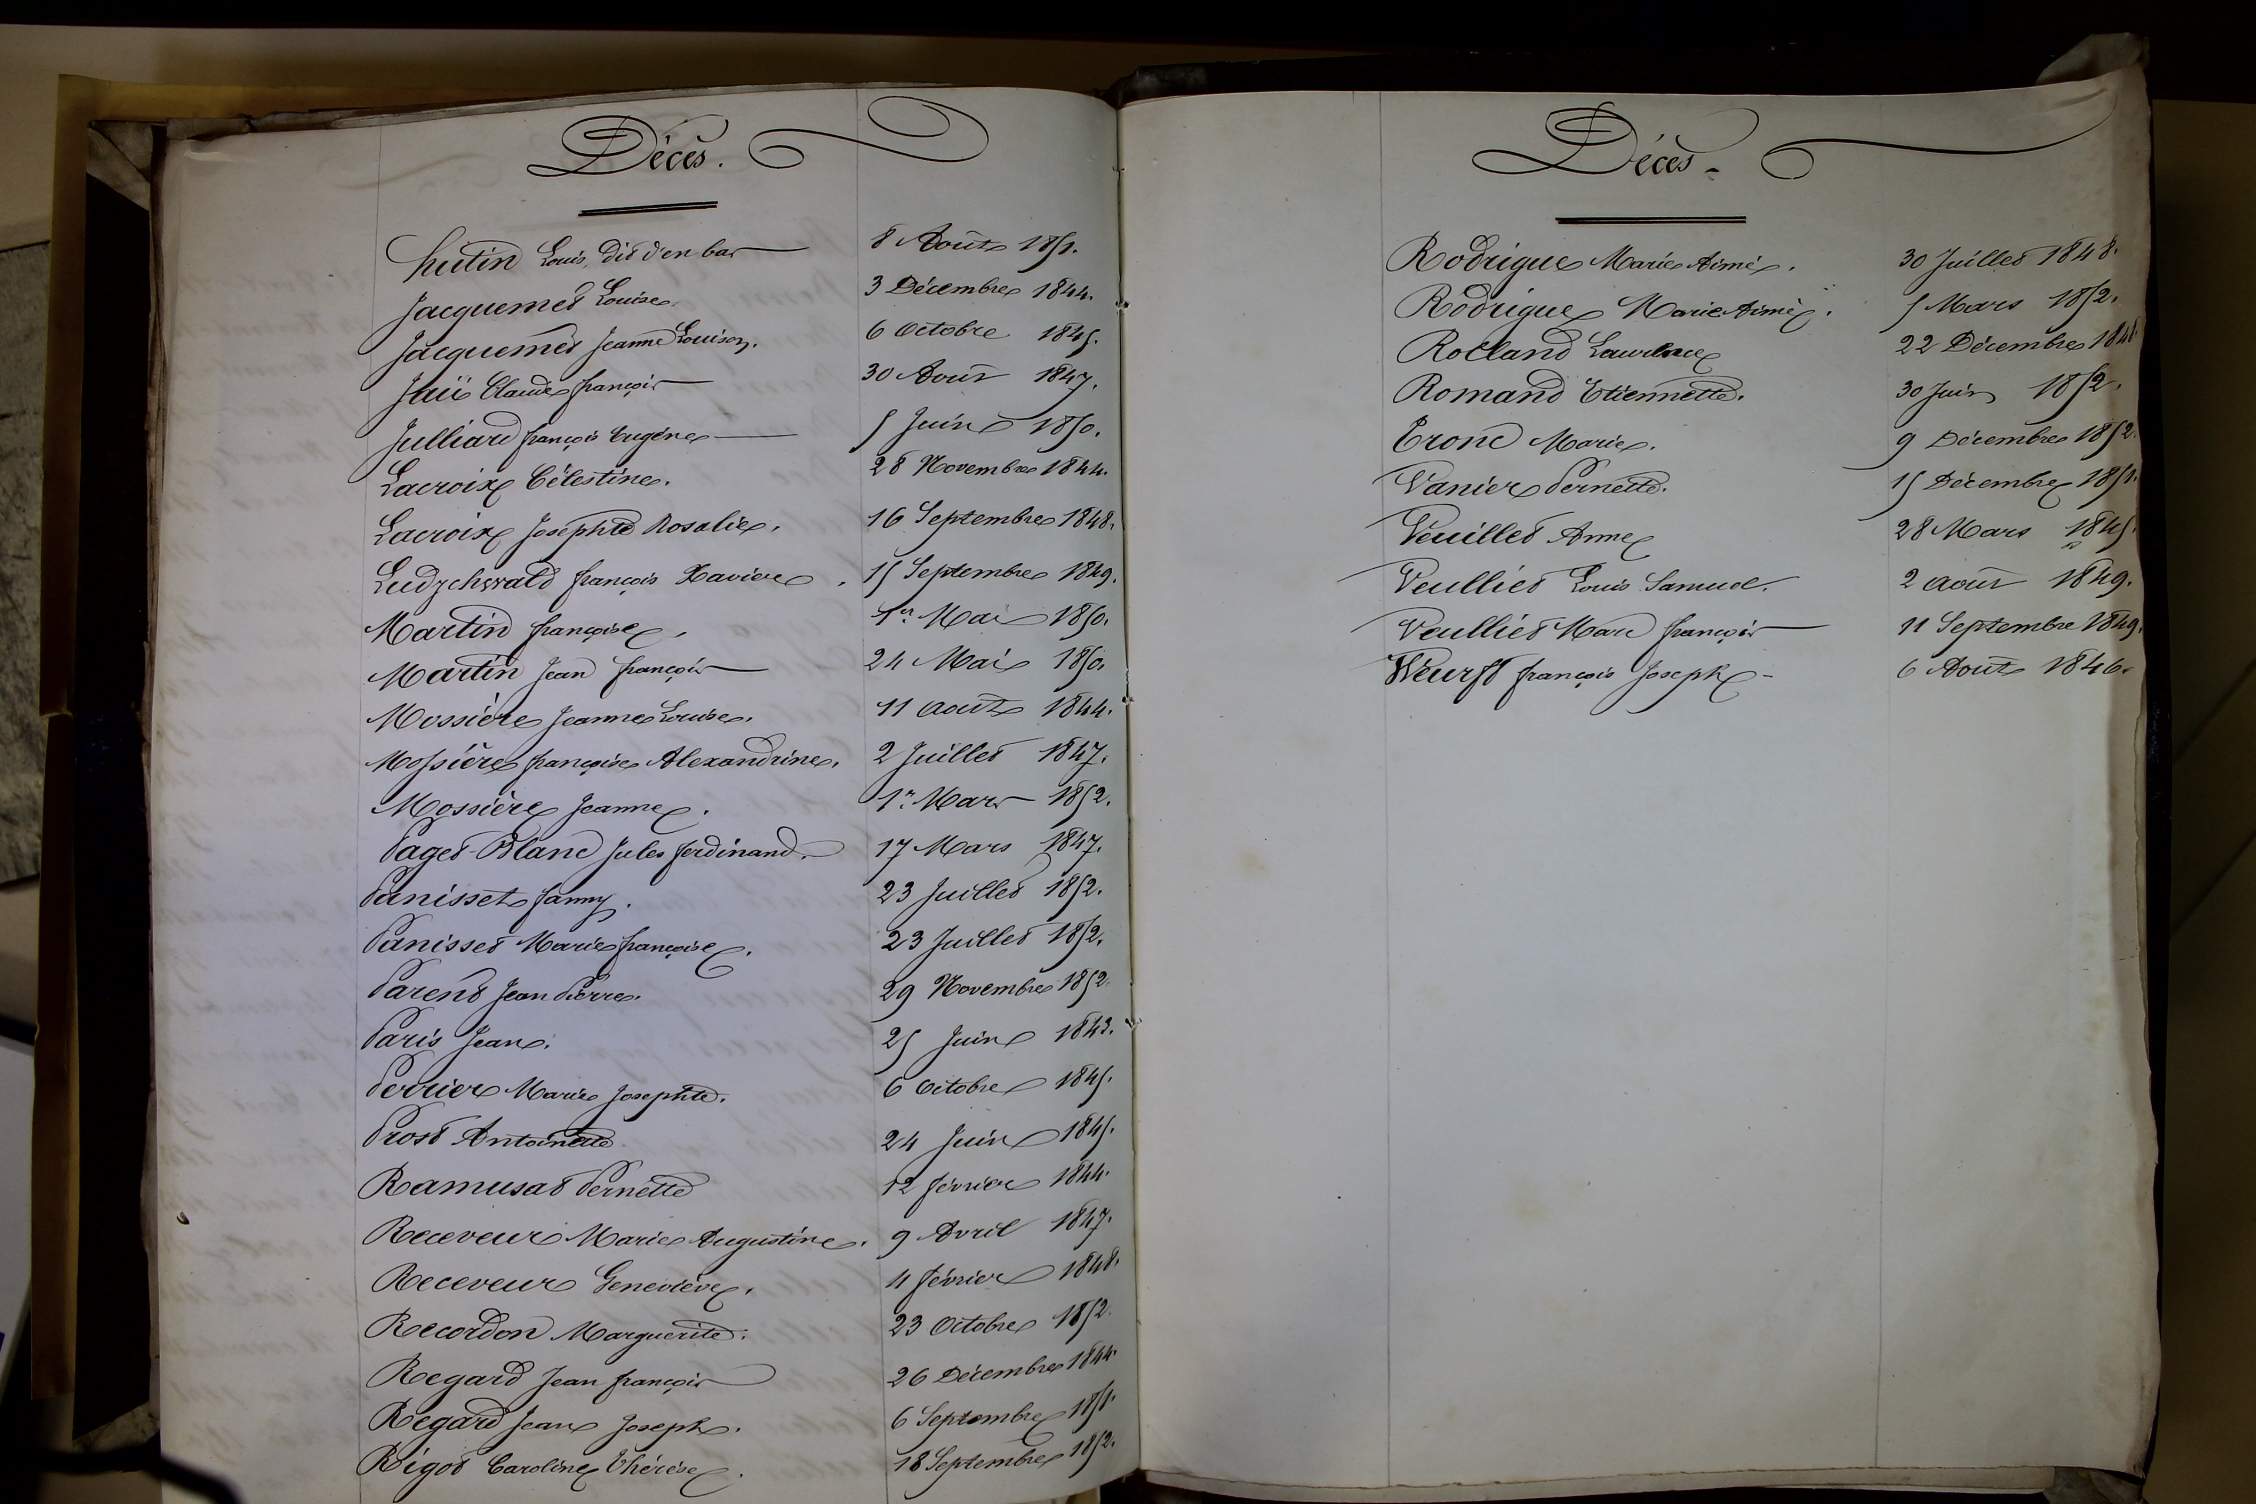 Décès.
Hutin Louis, dit d'en bas 8 Août 1851.
Jacquemet Louise 3 Décembre 1844.
Jacquemet Jeanne Louison. 6 Octobre 1845.
Jaÿ Claude françois 30 Août 1847.
Julliard françois Eugène 5 Juin 1850.
Lacroix Célestine. 28 Novembre 1844.
Lacroix Josephte Rosalie. 16 Septembre 1848.
Ludzchwald françois Xavier. 15 Septembre 1849.
Martin françoise. 1er Mai 1850.
Martin Jean françois 24 Mai 1850.
Mossière Jeanne Louise. 11 août 1844.
Mossière françoise Alexandrine. 2 Juillet 1847.
Mossière Jeanne. 1er Mars 1852.
Paget-Blanc Jules ferdinand. 17 Mars 1847.
Panisset fanny. 23 Juillet 1852.
Panisset Marie françoise. 23 Juillet 1852.
Parent Jean Pierre. 29 Novembre 1852.
Paris Jean. 25 Juin 1843.
Perrier Marie Josephte. 6 Octobre 1845.
Prost Antoinette 24 Juin 1845.
Ramusat Pernette 12 février 1844.
Receveur Marie Augustine. 9 Avril 1847.
Receveur Geneviève. 4 février 1848.
Recordon Marguerite. 23 Octobre 1852.
Regard Jean françois 26 Décembre 1844.
Regard Jean Joseph. 6 Septembre 1851.
Rigot Caroline Thérèse. 18 Septembre 1852.
Décès.
Rodrigue Marie Aimé. 30 Juillet 1848.
Rodrigue Marie Aimé. 5 Mars 1852.
Rolland Laurence 22 Décembre 1848
Romand Etiennette. 30 Juin 1852.
Tronc Marie. 9 Décembre 1852.
Vanier Pernette. 15 Décembre 1851.
Veuillet Anne 28 Mars 1845.
Veulliet Louis Samuel. 2 août 1849.
Veulliet Marc françois 11 Septembre 1849.
Weurst françois Joseph 6 Août 1846.